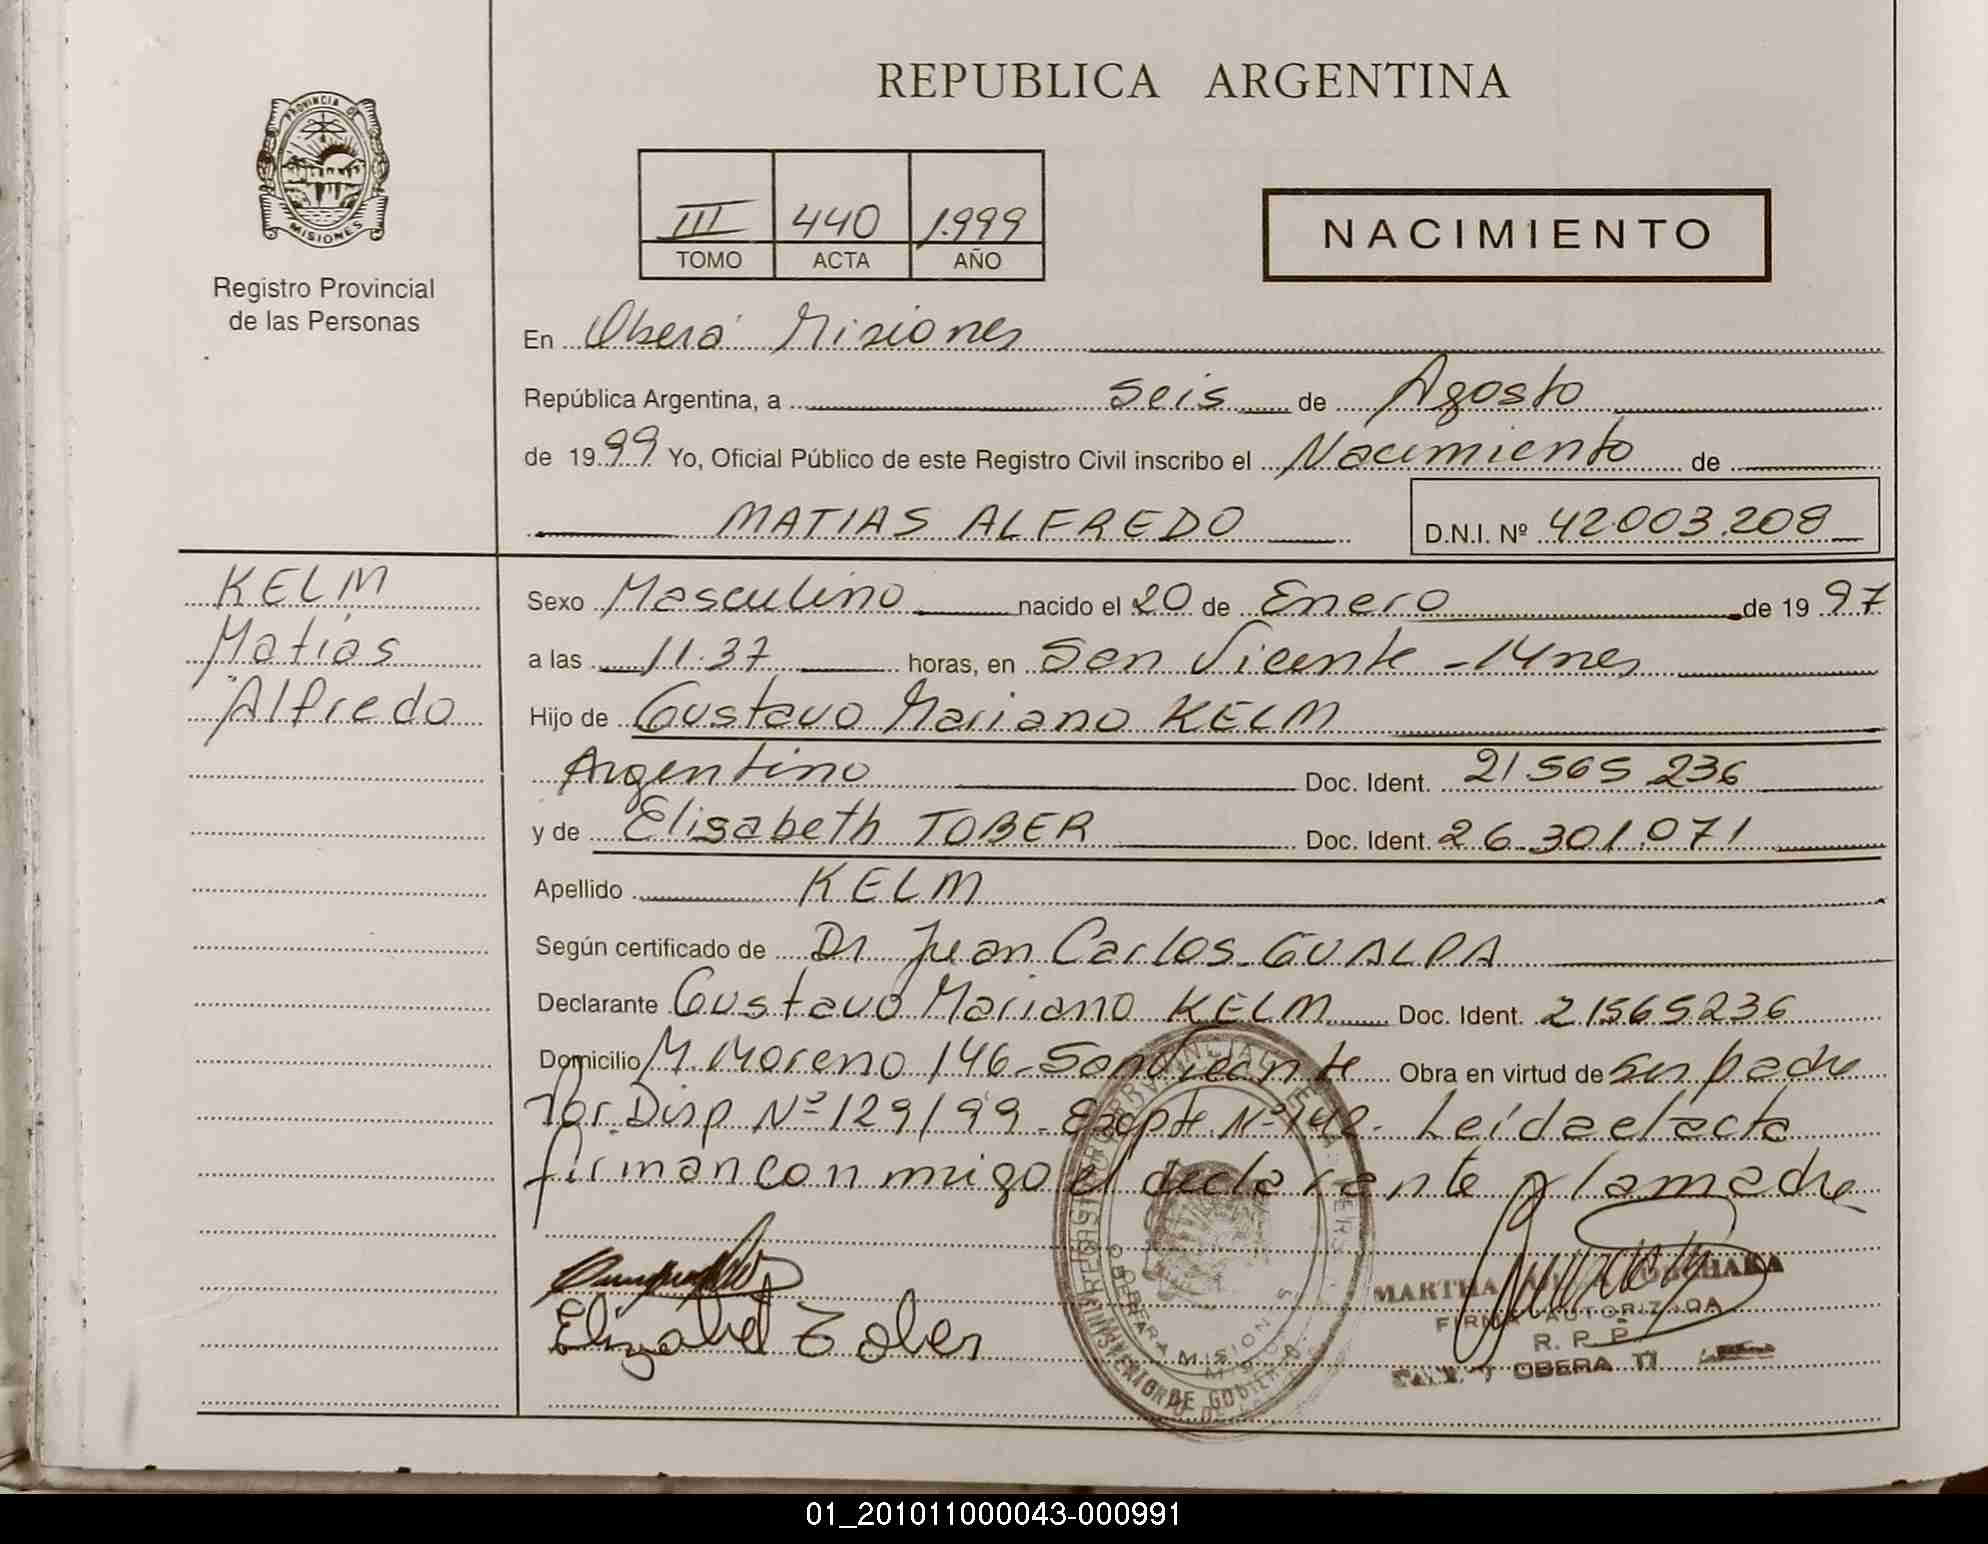 REPUBLICA ARGENTINA
PROVINCIA DE
MISIONES
Registro Provincial
de las Personas
III 440 1.999
TOMO ACTA AÑO
NACIMIENTO
En Oberá Misiones
República Argentina, a seis de Agosto
de 1999 Yo, Oficial Público de este Registro Civil inscribo el Nacimiento de
MATIAS ALFREDO D.N.I. Nº 42.003.208
KELM
Matías
Alfredo
Sexo Masculino nacido el 20 de Enero de 1997
a las 11.37 horas, en San Vicente - Mnes
Hijo de Gustavo Mariano KELM
Argentino Doc. Ident. 21.565.236
y de Elisabeth TOBER Doc. Ident. 26.301.071
Apellido KELM
Según certificado de Dr Juan Carlos GUALPA
Declarante Gustavo Mariano KELM Doc. Ident. 21565236
Domicilio M. Moreno 146 - San Vicente Obra en virtud de ser padre
Por Disp Nº 129/99 - Expte Nº 142 - Leída el acta
firman conmigo el declarante y la madre
Elizabet Tober
MARTHA
FIRMA AUTORIZADA
R. P. P.
OBERA
OBERA MISIONES
MINISTERIO DE GOBIERNO
01_201011000043-000991